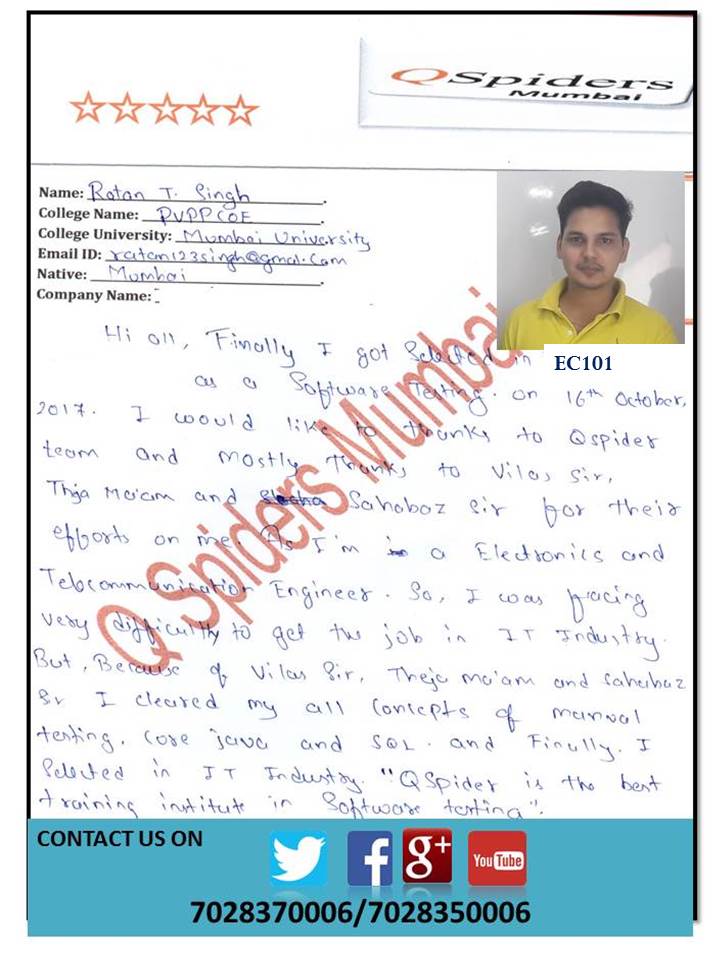 QSpiders
Mumbai
Name: Ratan T. Singh
College Name: PVPPCOE
College University: Mumbai University
Email ID: ratan123singh@gmal.com
Native: Mumbai
Company Name: -
Hi all, Finally I got Selected in
EC101
as a Software Testing. on 16th October,
2017. I would like to thanks to Qspider
team and mostly thanks to Vilas Sir,
Thja Ma'am and Sahabaz sir for their
efforts on me. As I'm a Electronics and
Telecommunication Engineer. So, I was facing
very difficulty to get the job in IT Industry.
But, Because of Vilas Sir, Theja ma'am and Sahabaz
Sir I cleared my all Concepts of manual
testing, Core java and SQL. and Finally. I
Selected in IT Industry. "QSpider is the best
training institute in Software testing".
Q Spiders Mumbai
CONTACT US ON
You Tube
7028370006/7028350006